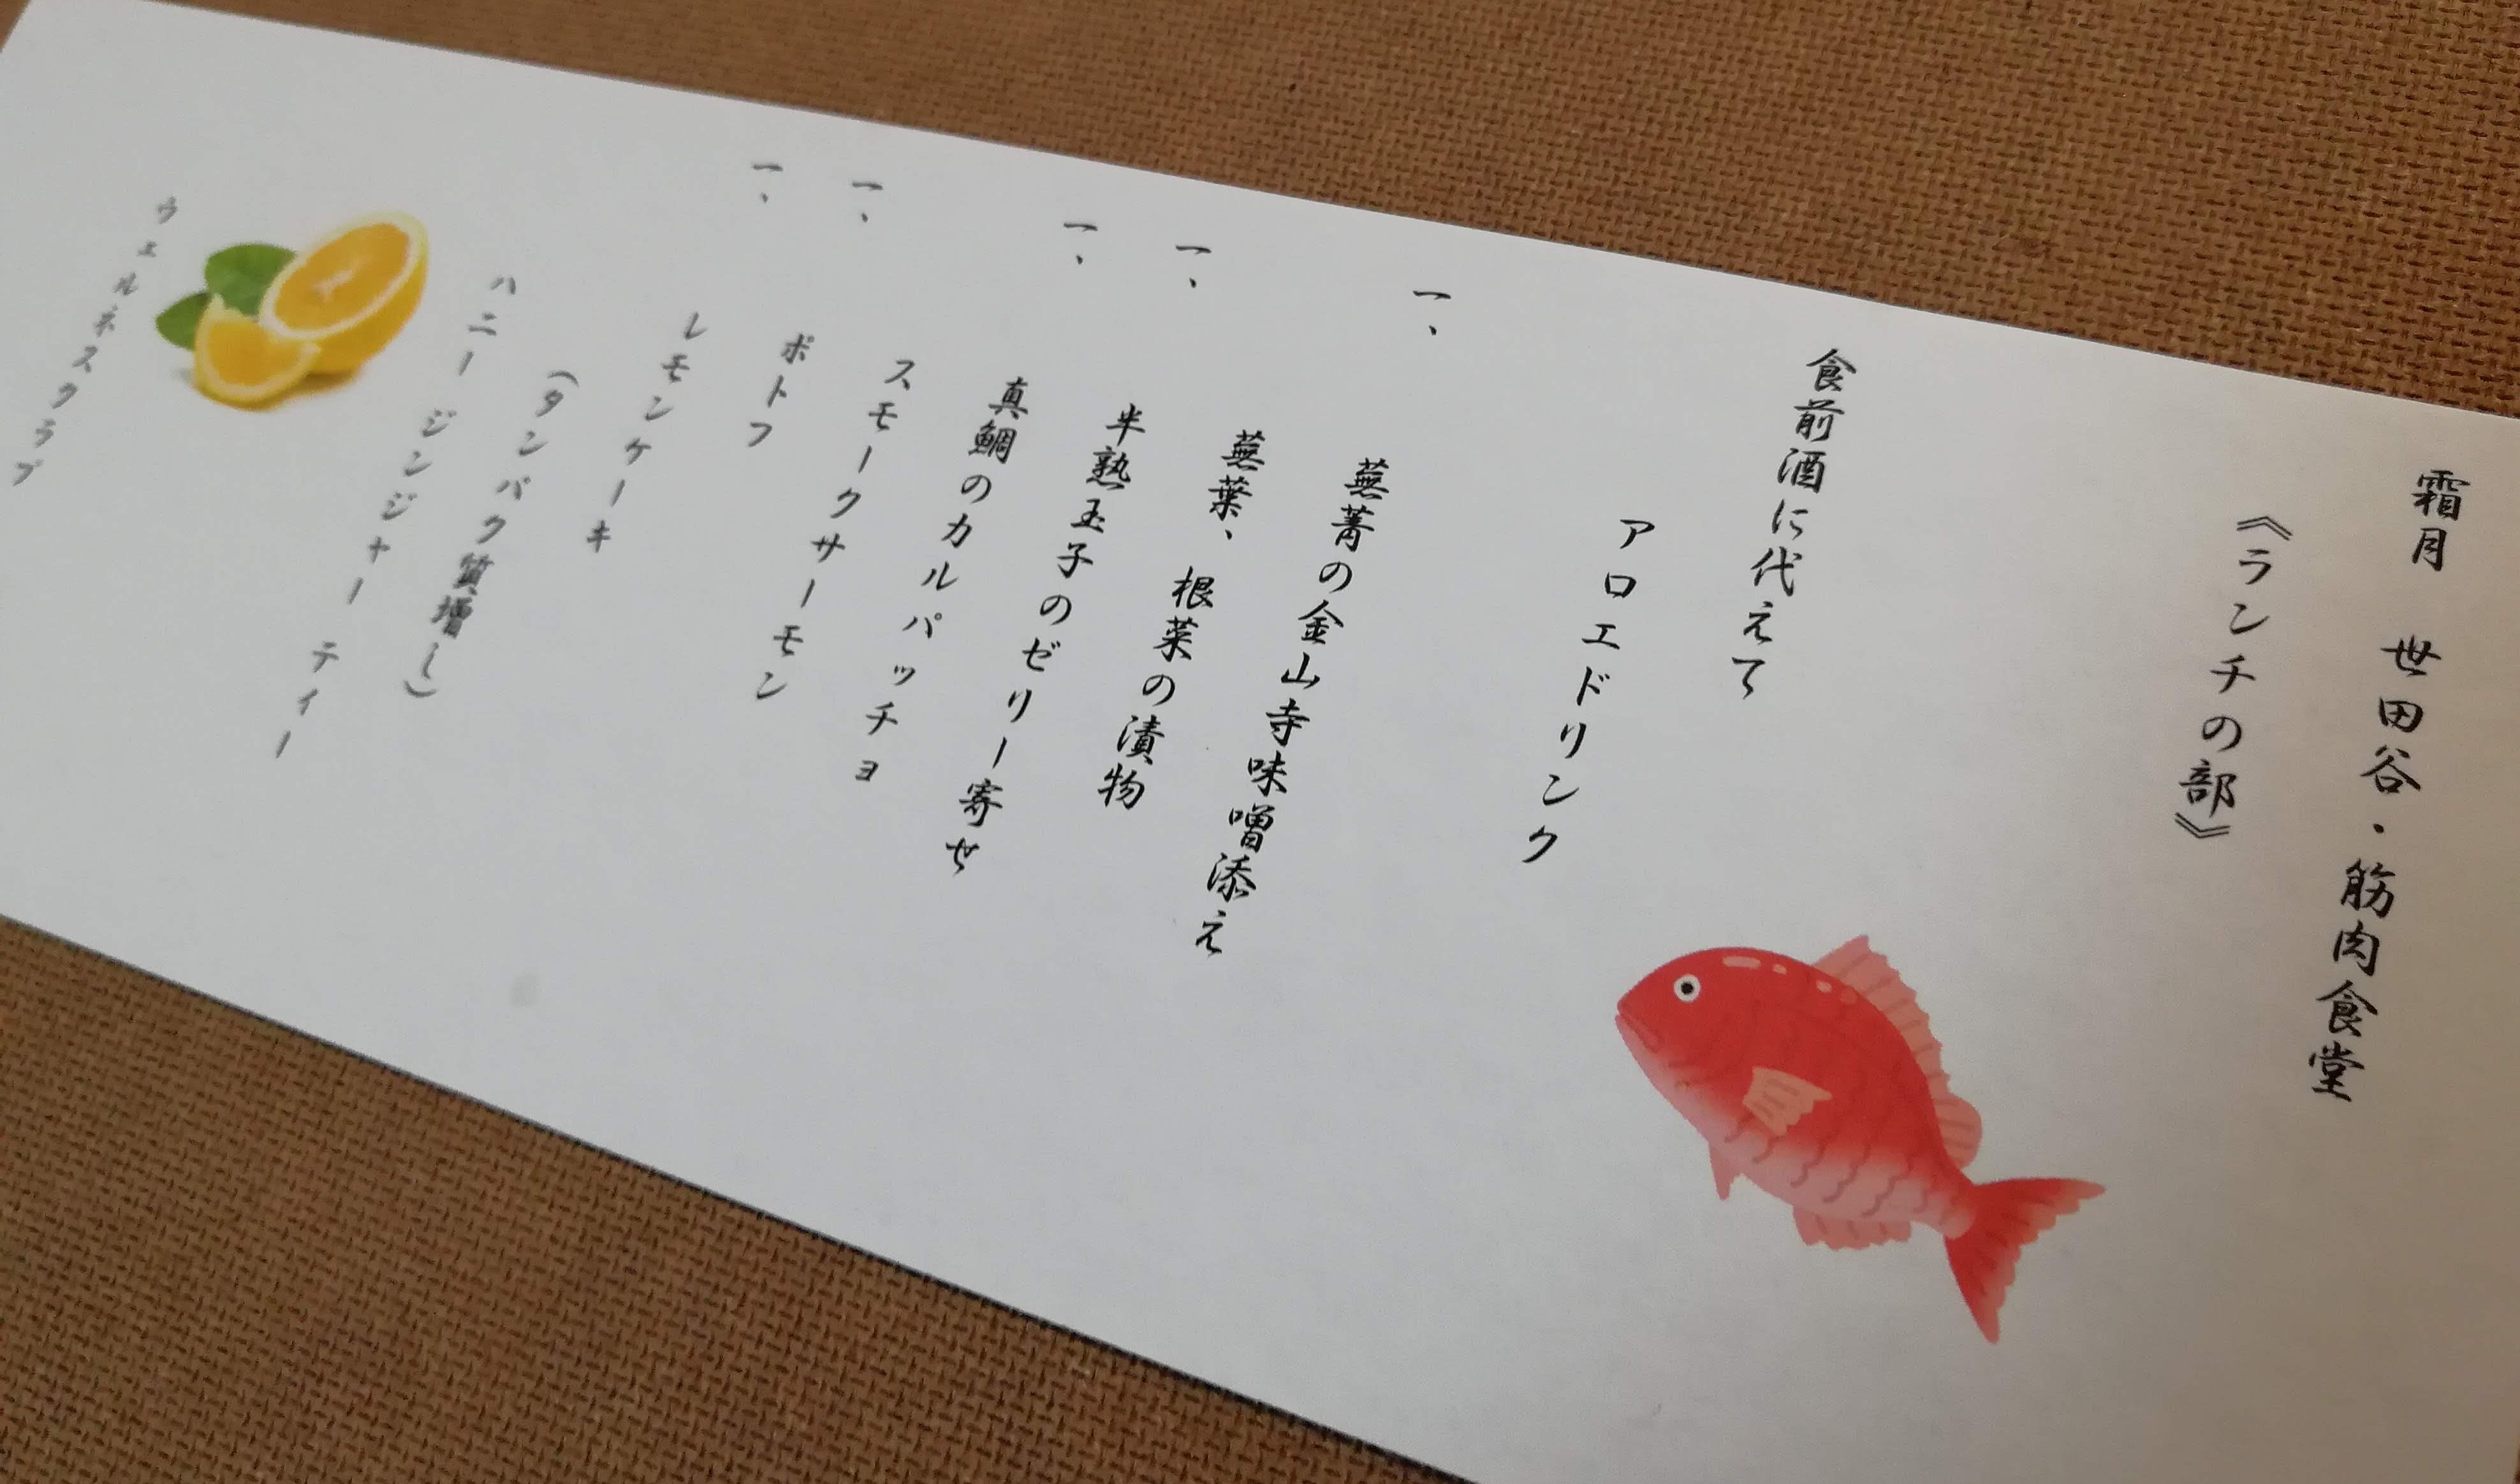 霜月 世田谷・筋肉食堂
《ランチの部》
食前酒に代えて
アロエドリンク
一、 蕪菁の金山寺味噌添え
蕪葉、根菜の漬物
一、 半熟玉子のゼリー寄せ
一、 真鯛のカルパッチョ
スモークサーモン
一、 ポトフ
一、 レモンケーキ
(タンパク質増し)
ハニージンジャーティー
ウェルネスクラブ